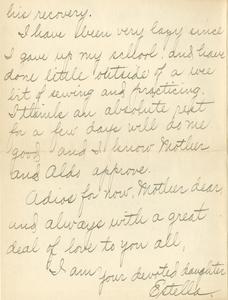 his recovery.
I have been very lazy since
I gave up my school, and have
done little outside of a wee
bit of sewing and practicing.
I think an absolute rest
for a few days will do me
good and I know Mother
and Aldo approve.
Adios for now, Mother dear,
and always with a great
deal of love to you all,
I am
your devoted daughter
Estella.